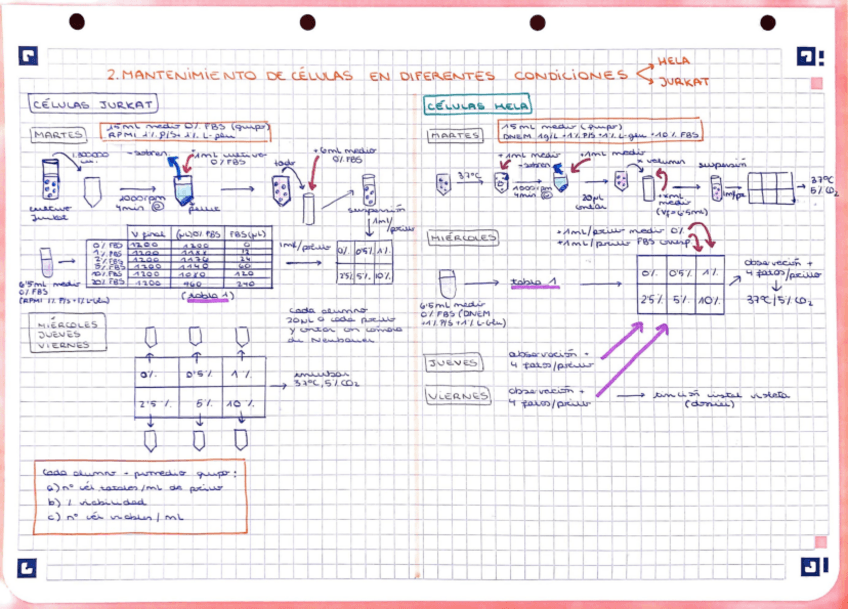 2. MANTENIMIENTO DE CÉLULAS EN DIFERENTES CONDICIONES
HELA
JURKAT
CÉLULAS JURKAT
MARTES
15mL medio 0% FBS (grupo)
RPMI 1% P/S + 1% L-glu
1.500.000
-sobren.
+1mL cultivo
0% FBS
todo
+6mL medio
0% FBS
cultivo
Jurkat
1000rpm
4min
pellet
suspensión
1mL/
pocillo
V final (µL) 0% FBS FBS (µL)
0% FBS 1200 1200 0
1200 12
1200 24
1200 1140 60
10% FBS 1200 1080 120
1200 960 240
(tabla 1)
6'5mL medio
0% FBS
(RPMI 1% P/S + 1% L-glu)
1mL/pocillo
0% 0'5% 1%
2'5% 5% 10%
MIÉRCOLES
JUEVES
VIERNES
cada alumno
20µL a cada pocillo
y contar en cámara
de Neubauer
0% 0'5% 1%
2'5% 5% 10%
incubar
37ºC, 5% CO2
Cada alumno + promedio grupo:
a) nº cél totales/mL de pocillo
b) % viabilidad
c) nº cél viables/mL
CÉLULAS HELA
MARTES
15mL medio (grupo)
DMEM 1g/L + 1% P/S + 1% L-glu + 10% FBS
37ºC
+1mL medio
-sobren
+1mL medio
x volumen
suspensión
1000rpm
4min
20µL
contar
medio
(Vf=6'5mL)
37ºC
5% CO2
MIÉRCOLES
+1mL/pocillo medio 0%
+1mL/pocillo FBS corresp
6'5mL medio
0% FBS (DMEM
+1% P/S + 1% L-Glu)
tabla 1
0% 0'5% 1%
2'5% 5% 10%
observación +
4 fotos/pocillo
37ºC/5% CO2
JUEVES
observación +
4 fotos/pocillo
VIERNES
observación +
4 fotos/pocillo
tinción cristal violeta